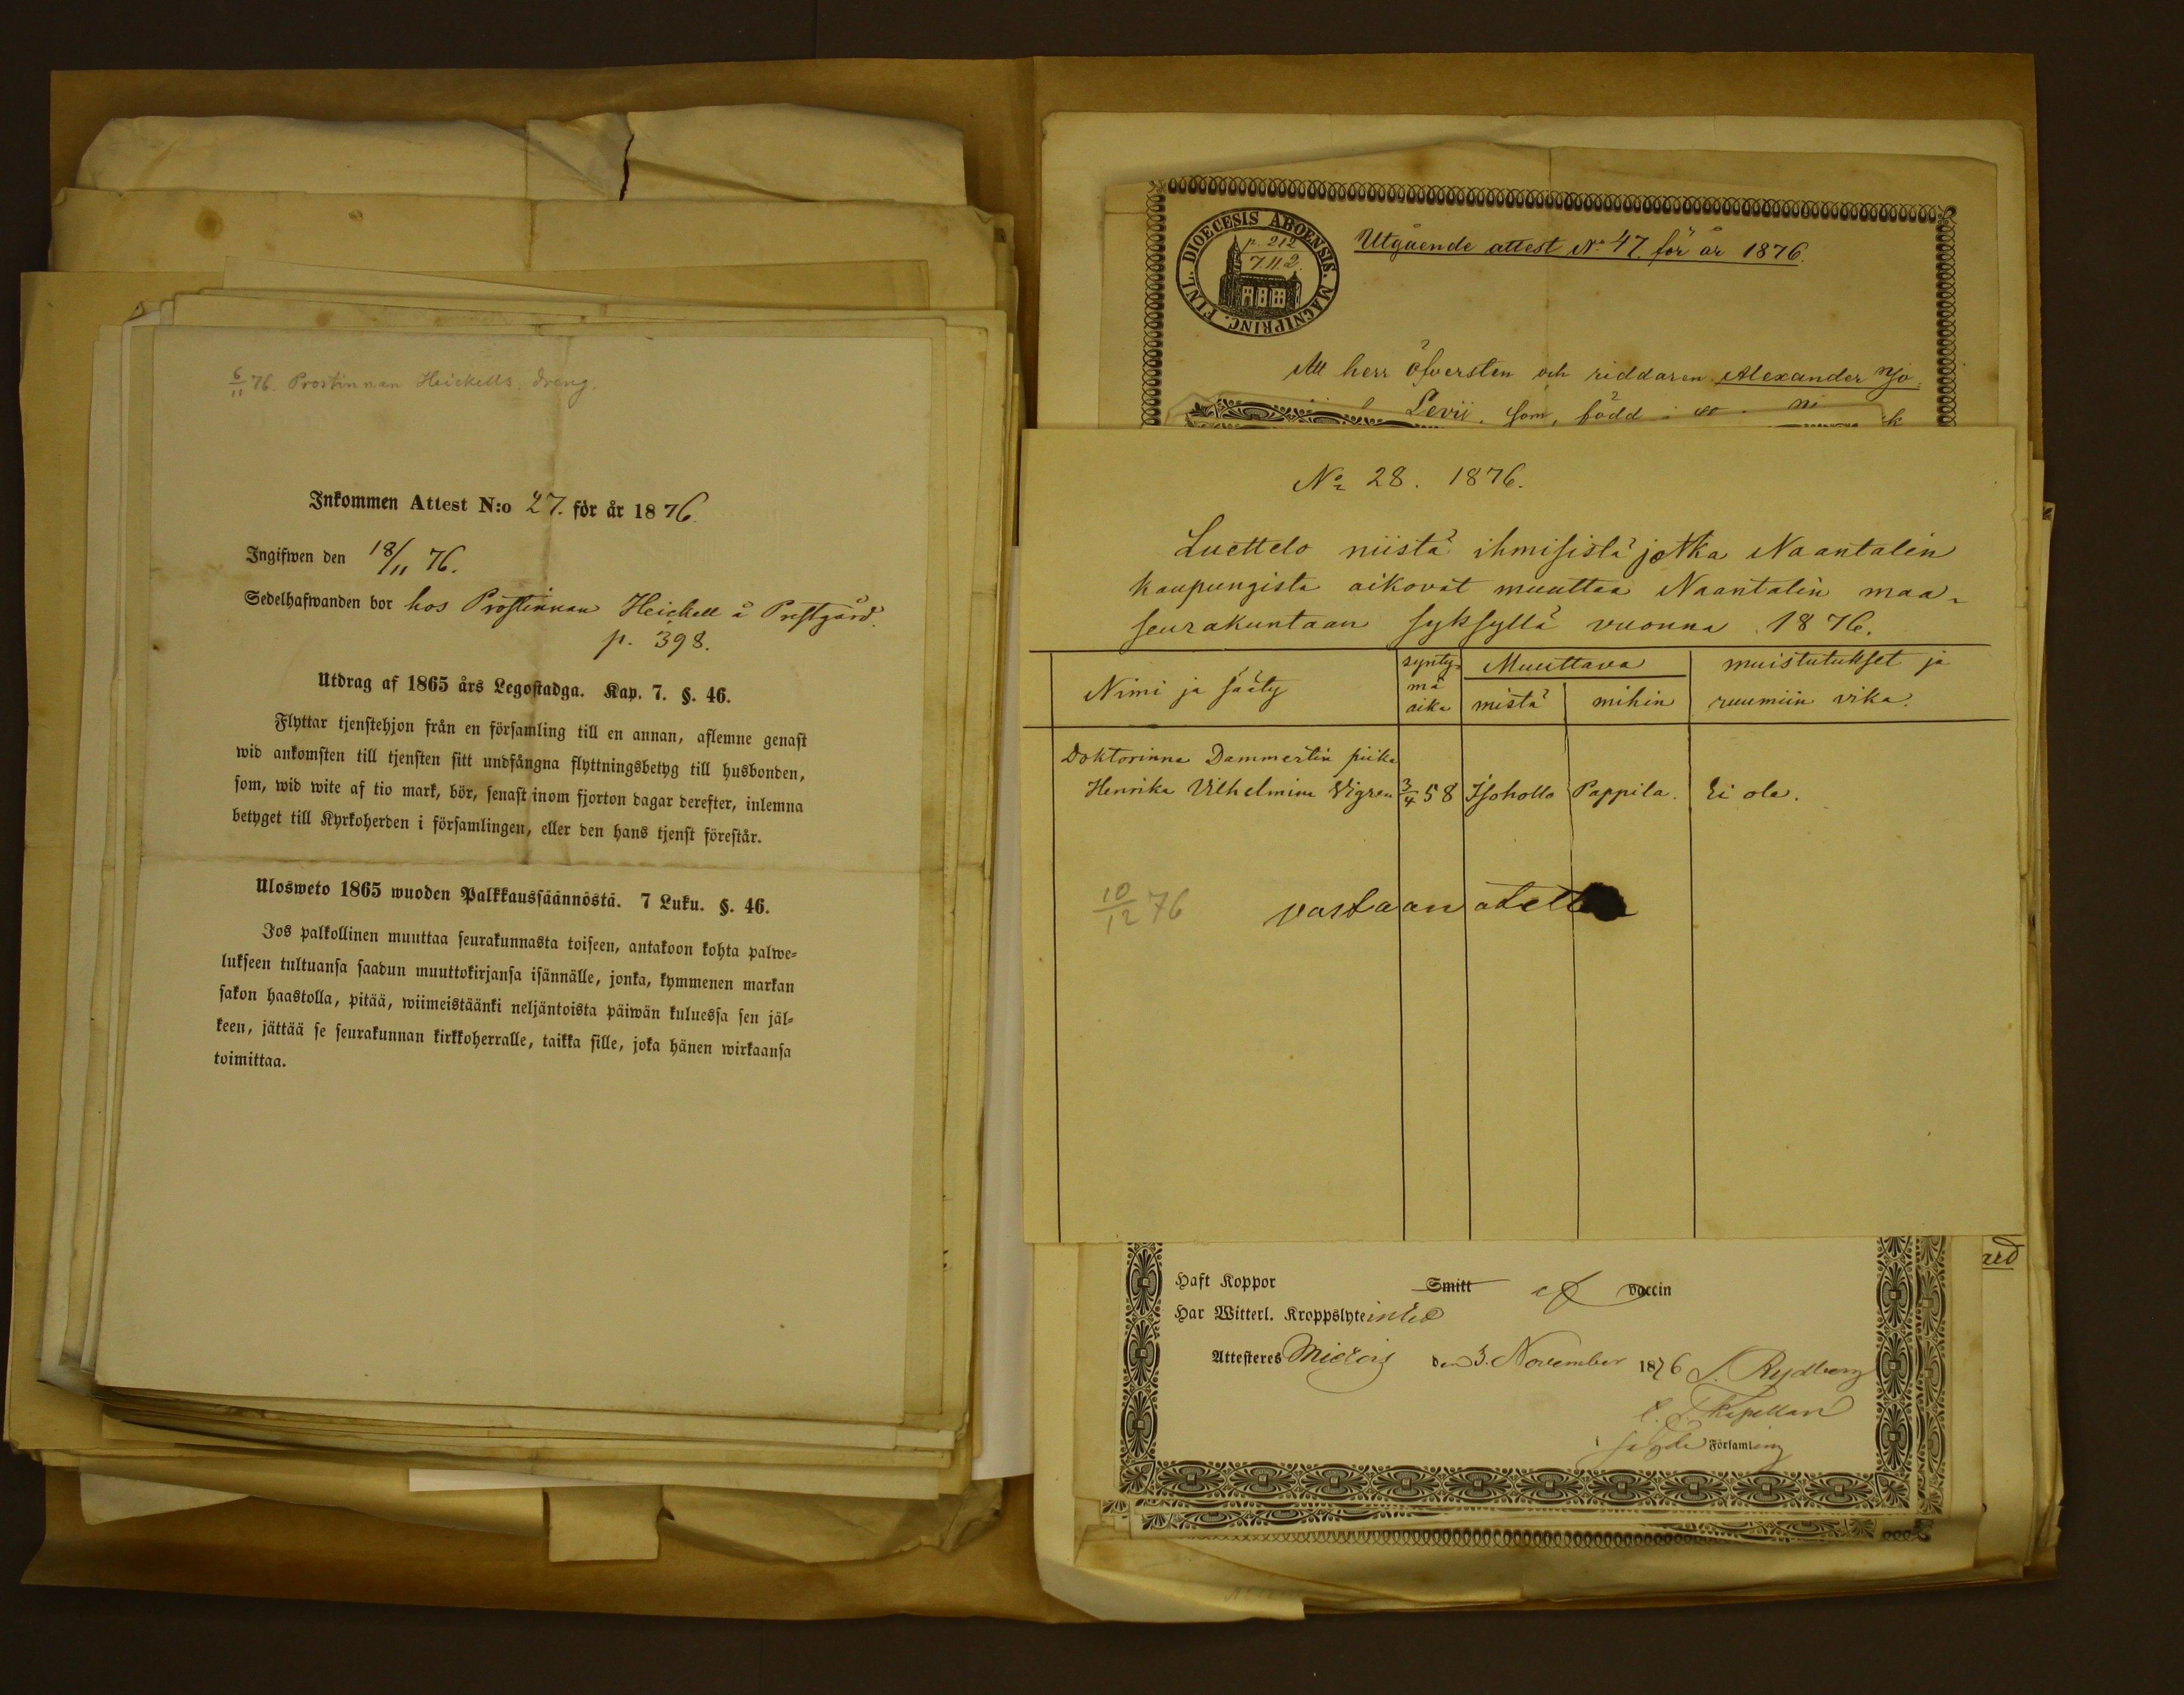 6/11 76. Prostinnan Heickells, dreng.
Inkommen Attest N:o 27. för år 1876.
Ingifwen den 18/11 76.
Sedelhafwanden bor hos Prostinnan Heickell å Prestgård.
p. 398.
Utdrag af 1865 års Legostadga. Kap. 7. §. 46.
Flyttar tjenstehjon från en församling till en annan, aflemne genast
wid ankomsten till tjensten sitt undfångna flyttningsbetyg till husbonden,
som, wid wite af tio mark, bör, senast inom fjorton dagar derefter, inlemna
betyget till Kyrkoherden i församlingen, eller den hans tjenst förestår.
Ulosweto 1865 wuoden Palkkaussäännöstä. 7 Luku. §. 46.
Jos palkollinen muuttaa seurakunnasta toiseen, antakoon kohta palwe-
lukseen tultuansa saadun muuttokirjansa isännälle, jonka, kymmenen markan
sakon haastolla, pitää, wiimeistäänki neljäntoista päiwän kuluessa sen jäl-
keen, jättää se seurakunnan kirkkoherralle, taikka sille, joka hänen wirkaansa
toimittaa.
DIOECESIS ABOENSIS. MAGNIPRINC. FINL.
p. 212
7.11.2.
Utgående attest No 47. för år 1876.
Att herr öfversten och riddaren Alexander
Levii, som, född
No 28. 1876.
Luettelo niistä ihmisistä jotka Naantalin
kaupungista aikovat muuttaa Naantalin maa-
seurakuntaan syksyllä vuonna 1876.
Nimi ja sääty
synty-
mä
aika
Muuttava
mistä
mihin
muistutukset ja
ruumiin vika.
Doktorinna Dammertin piika
Henrika Vilhelmina Vigren 3/4 58 Isoholla Pappila. Ei ole.
10/12 76 vastaan otettu
Haft Koppor Smitt af vaccin
Har Witterl. Kroppslyte intet
Attesteres Mietois den 3. November 1876 S. Rydberg
Kapellan
Församling